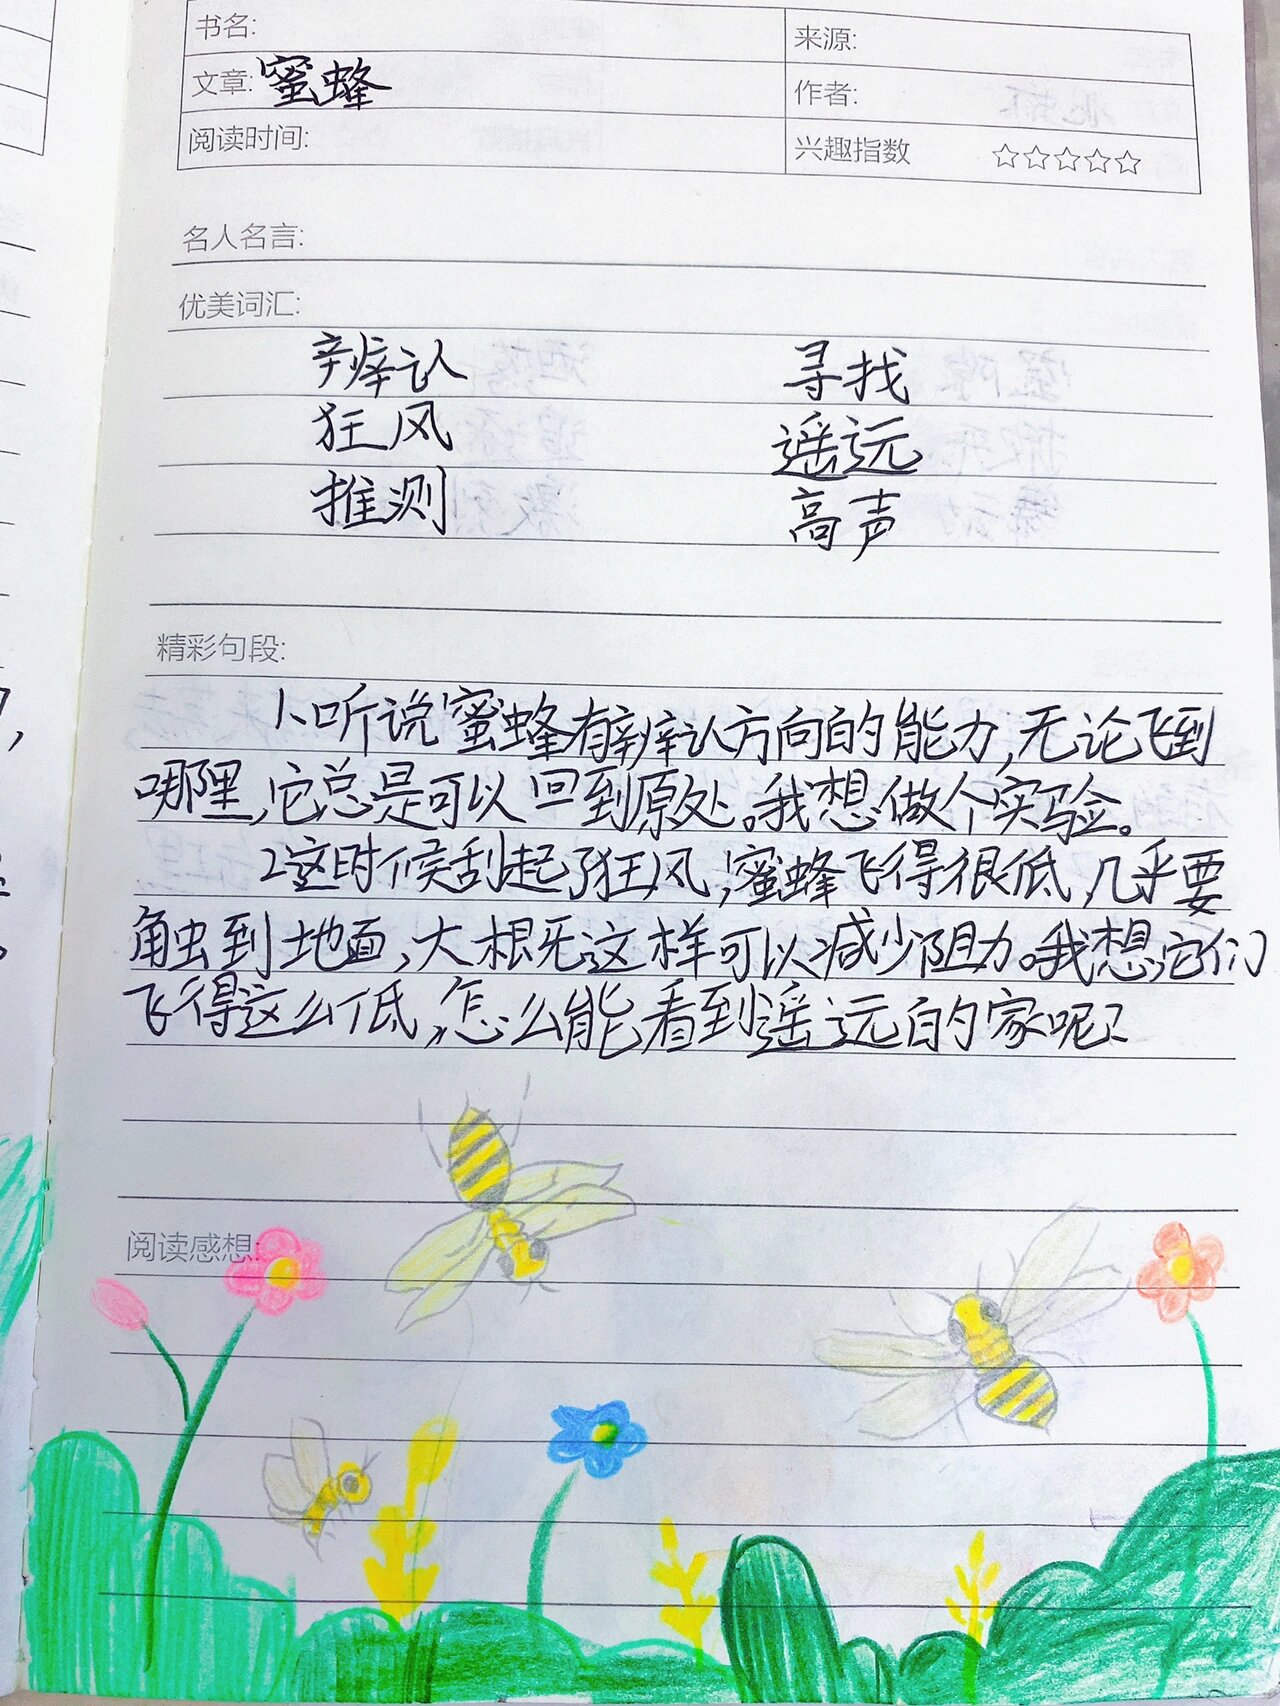 书名:
来源:
文章: 蜜蜂
作者:
阅读时间:
兴趣指数 ☆☆☆☆☆
名人名言:
优美词汇:
辨认 寻找
狂风 遥远
推测 高声
精彩句段:
1、听说蜜蜂有辨认方向的能力,无论飞到
哪里,它总是可以回到原处。我想做个实验。
2这时候刮起了狂风,蜜蜂飞得很低,几乎要
触到地面,大概这样可以减少阻力。我想,它们
飞得这么低,怎么能看到遥远的家呢?
阅读感想: